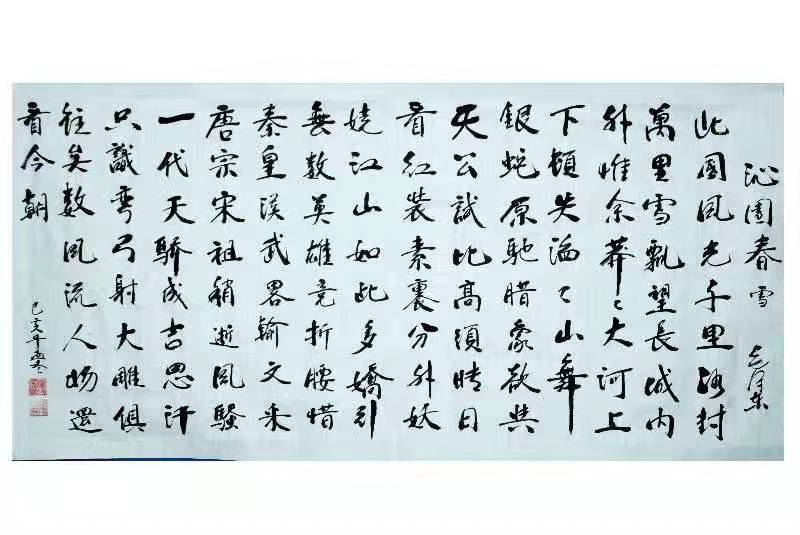 沁園春雪 毛澤東
北國風光千里冰封
萬里雪飄望長城內
外惟余莽〻大河上
下頓失滔〻山舞
銀蛇原馳腊象欲與
天公試比高須晴日
看紅裝素裹分外妖
嬈江山如此多嬌引
無數英雄竞折腰惜
秦皇漢武畧輸文采
唐宗宋祖稍逊風騷
一代天驕成吉思汗
只識彎弓射大雕俱
往矣數風流人物還
看今朝
己亥年孟冬